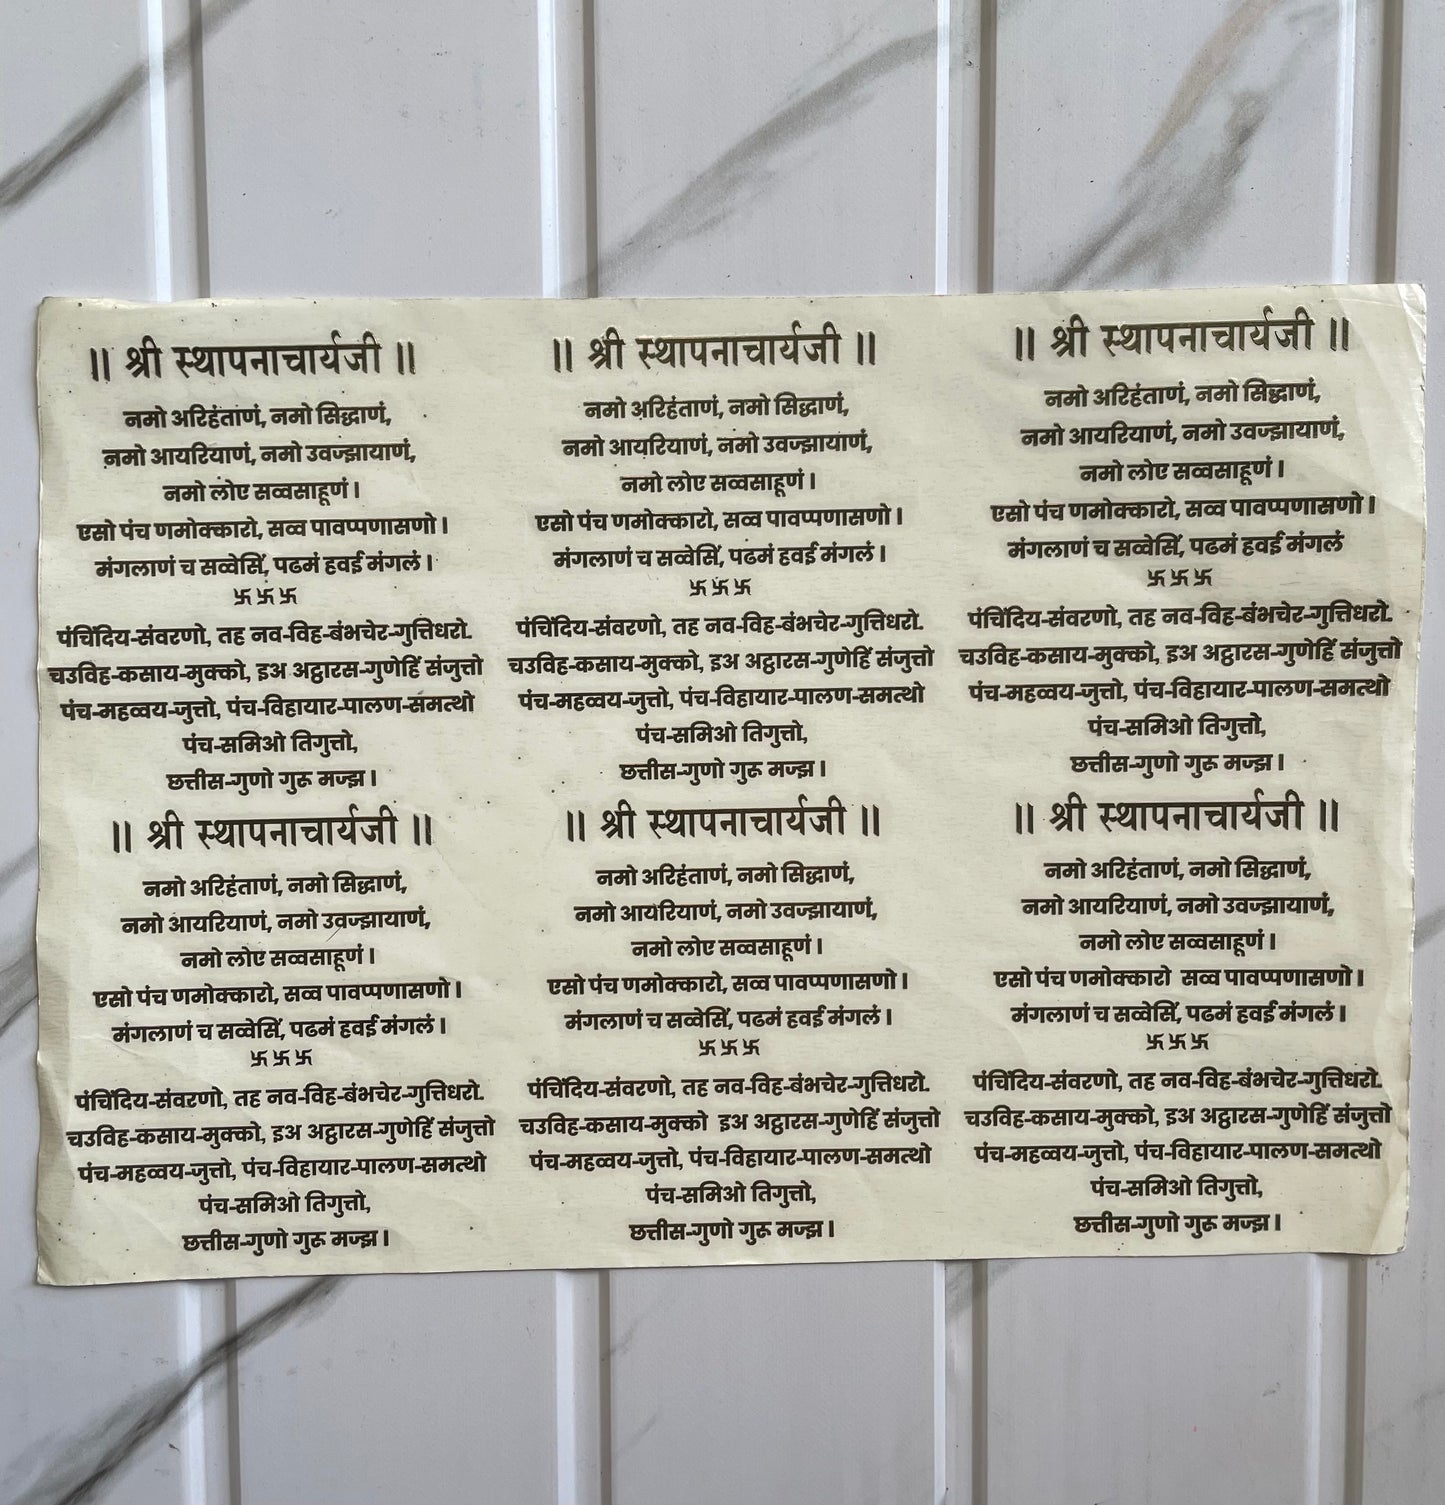 ॥ श्री स्थापनाचार्यजी ॥
नमो अरिहंताणं, नमो सिद्धाणं,
नमो आयरियाणं, नमो उवज्झायाणं,
नमो लोए सव्वसाहूणं।
एसो पंच णमोक्कारो, सव्व पावप्पणासणो।
मंगलाणं च सव्वेसिं, पढमं हवई मंगलं।
卐 卐 卐
पंचिंदिय-संवरणो, तह नव-विह-बंभचेर-गुत्तिधरो.
चउविह-कसाय-मुक्को, इअ अट्ठारस-गुणेहिं संजुत्तो
पंच-महव्वय-जुत्तो, पंच-विहायार-पालण-समत्थो
पंच-समिओ तिगुत्तो,
छत्तीस-गुणो गुरू मज्झ।
॥ श्री स्थापनाचार्यजी ॥
नमो अरिहंताणं, नमो सिद्धाणं,
नमो आयरियाणं, नमो उवज्झायाणं,
नमो लोए सव्वसाहूणं।
एसो पंच णमोक्कारो, सव्व पावप्पणासणो।
मंगलाणं च सव्वेसिं, पढमं हवई मंगलं।
卐 卐 卐
पंचिंदिय-संवरणो, तह नव-विह-बंभचेर-गुत्तिधरो.
चउविह-कसाय-मुक्को, इअ अट्ठारस-गुणेहिं संजुत्तो
पंच-महव्वय-जुत्तो, पंच-विहायार-पालण-समत्थो
पंच-समिओ तिगुत्तो,
छत्तीस-गुणो गुरू मज्झ।
॥ श्री स्थापनाचार्यजी ॥
नमो अरिहंताणं, नमो सिद्धाणं,
नमो आयरियाणं, नमो उवज्झायाणं,
नमो लोए सव्वसाहूणं।
एसो पंच णमोक्कारो, सव्व पावप्पणासणो।
मंगलाणं च सव्वेसिं, पढमं हवई मंगलं
卐 卐 卐
पंचिंदिय-संवरणो, तह नव-विह-बंभचेर-गुत्तिधरो.
चउविह-कसाय-मुक्को, इअ अट्ठारस-गुणेहिं संजुत्तो
पंच-महव्वय-जुत्तो, पंच-विहायार-पालण-समत्थो
पंच-समिओ तिगुत्तो,
छत्तीस-गुणो गुरू मज्झ।
॥ श्री स्थापनाचार्यजी ॥
नमो अरिहंताणं, नमो सिद्धाणं,
नमो आयरियाणं, नमो उवज्झायाणं,
नमो लोए सव्वसाहूणं।
एसो पंच णमोक्कारो, सव्व पावप्पणासणो।
मंगलाणं च सव्वेसिं, पढमं हवई मंगलं।
卐 卐 卐
पंचिंदिय-संवरणो, तह नव-विह-बंभचेर-गुत्तिधरो.
चउविह-कसाय-मुक्को, इअ अट्ठारस-गुणेहिं संजुत्तो
पंच-महव्वय-जुत्तो, पंच-विहायार-पालण-समत्थो
पंच-समिओ तिगुत्तो,
छत्तीस-गुणो गुरू मज्झ।
॥ श्री स्थापनाचार्यजी ॥
नमो अरिहंताणं, नमो सिद्धाणं,
नमो आयरियाणं, नमो उवज्झायाणं,
नमो लोए सव्वसाहूणं।
एसो पंच णमोक्कारो, सव्व पावप्पणासणो।
मंगलाणं च सव्वेसिं, पढमं हवई मंगलं।
卐 卐 卐
पंचिंदिय-संवरणो, तह नव-विह-बंभचेर-गुत्तिधरो.
चउविह-कसाय-मुक्को इअ अट्ठारस-गुणेहिं संजुत्तो
पंच-महव्वय-जुत्तो, पंच-विहायार-पालण-समत्थो
पंच-समिओ तिगुत्तो,
छत्तीस-गुणो गुरू मज्झ।
॥ श्री स्थापनाचार्यजी ॥
नमो अरिहंताणं, नमो सिद्धाणं,
नमो आयरियाणं, नमो उवज्झायाणं,
नमो लोए सव्वसाहूणं।
एसो पंच णमोक्कारो सव्व पावप्पणासणो।
मंगलाणं च सव्वेसिं, पढमं हवई मंगलं।
卐 卐 卐
पंचिंदिय-संवरणो, तह नव-विह-बंभचेर-गुत्तिधरो.
चउविह-कसाय-मुक्को, इअ अट्ठारस-गुणेहिं संजुत्तो
पंच-महव्वय-जुत्तो, पंच-विहायार-पालण-समत्थो
पंच-समिओ तिगुत्तो,
छत्तीस-गुणो गुरू मज्झ।